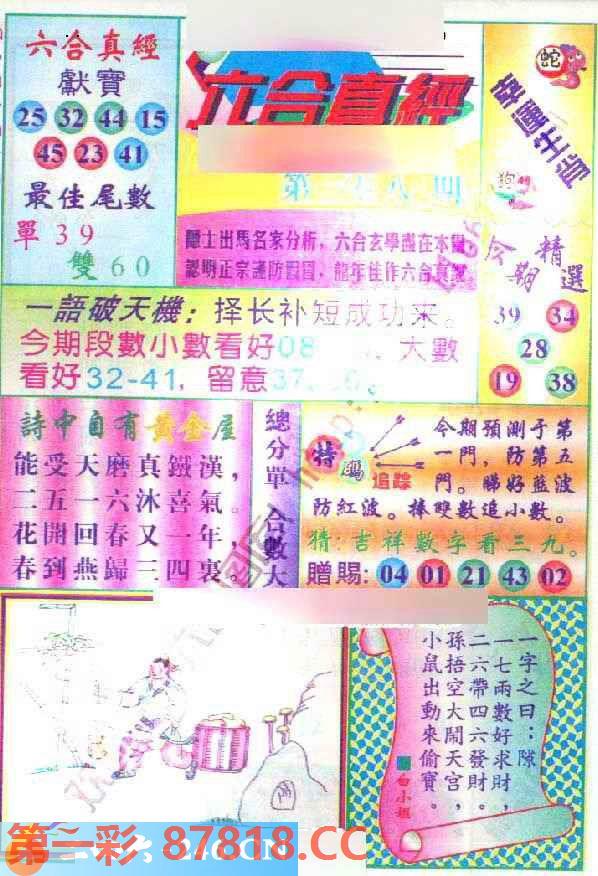 六合真經
獻寶
25 32 44 15
45 23 41
最佳尾數
單39
雙60
六合真經
蛇
狗
隱士出馬名家分析，六合玄學盡在本圖
一語破天機：择长补短成功来。
今期段數小數看好08 大數
看好32-41，留意37
今期精選
39 34
28
19 38
詩中自有黃金屋
能受天磨真鐵漢，
二五一六沐喜氣。
花開回春又一年，
春到燕歸三四裏。
總分單 合數大
特碼
追踪
今期預測于第
一門，防第五
門。睇好藍波
防紅波。捧雙數追小數。
猜：吉祥數字看三九。
贈賜：04 01 21 43 02
一字之曰：隙
一七兩數好求財，
二六帶四六發財。
孫悟空大鬧天宮，
小鼠出動來偷寶。
白小姐
第一彩 87818.CC